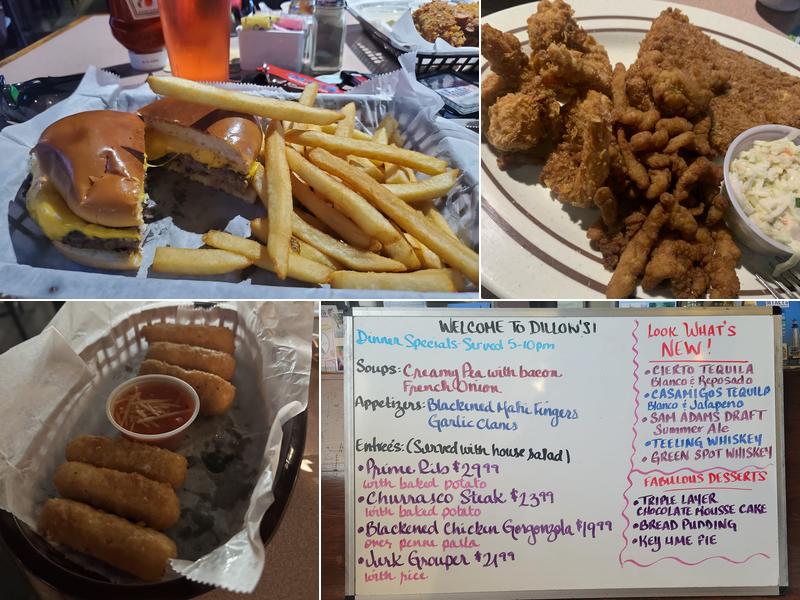 WELCOME TO DILLON'S!
Dinner Specials-Served 5-10pm
Soups: Creamy Pea with bacon
French Onion
Appetizers: Blackened Mahi Fingers
Garlic Clams
Entreés: (Served with house salad)
• Prime Rib $29.99
with baked potato
• Churrasco Steak $23.99
with baked potato
• Blackened Chicken Gorgonzola $19.99
over penne pasta
• Jerk Grouper $21.99
with rice
LOOK WHAT'S
NEW!
• CIERTO TEQUILA
Blanco & Reposado
• CASAMIGOS TEQUILA
Blanco & Jalapeno
• SAM ADAMS DRAFT
Summer Ale
• TEELING WHISKEY
• GREEN SPOT WHISKEY
FABULOUS DESSERTS
• TRIPLE LAYER
CHOCOLATE MOUSSE CAKE
• BREAD PUDDING
• KEY LIME PIE